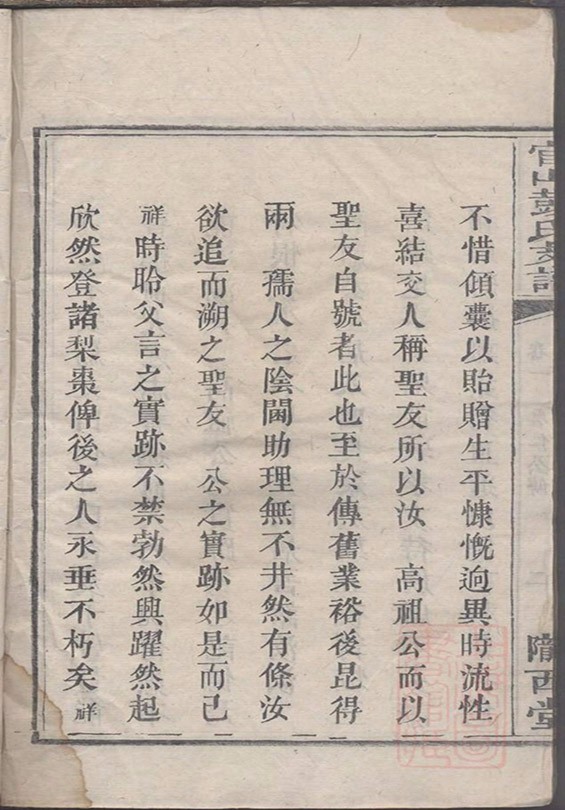 官山彭氏支譜
二
隴西堂
不惜傾囊以貽贈生平慷慨逈異時流性
喜結交人稱聖友所以汝 高祖公而以
聖友自號者此也至於傳舊業裕後昆得
兩 孺人之陰閫助理無不井然有條汝
欲追而溯之聖友 公之實跡如是而已
祥時聆父言之實跡不禁勃然興躍然起
欣然登諸梨棗俾後之人永垂不朽矣 祥